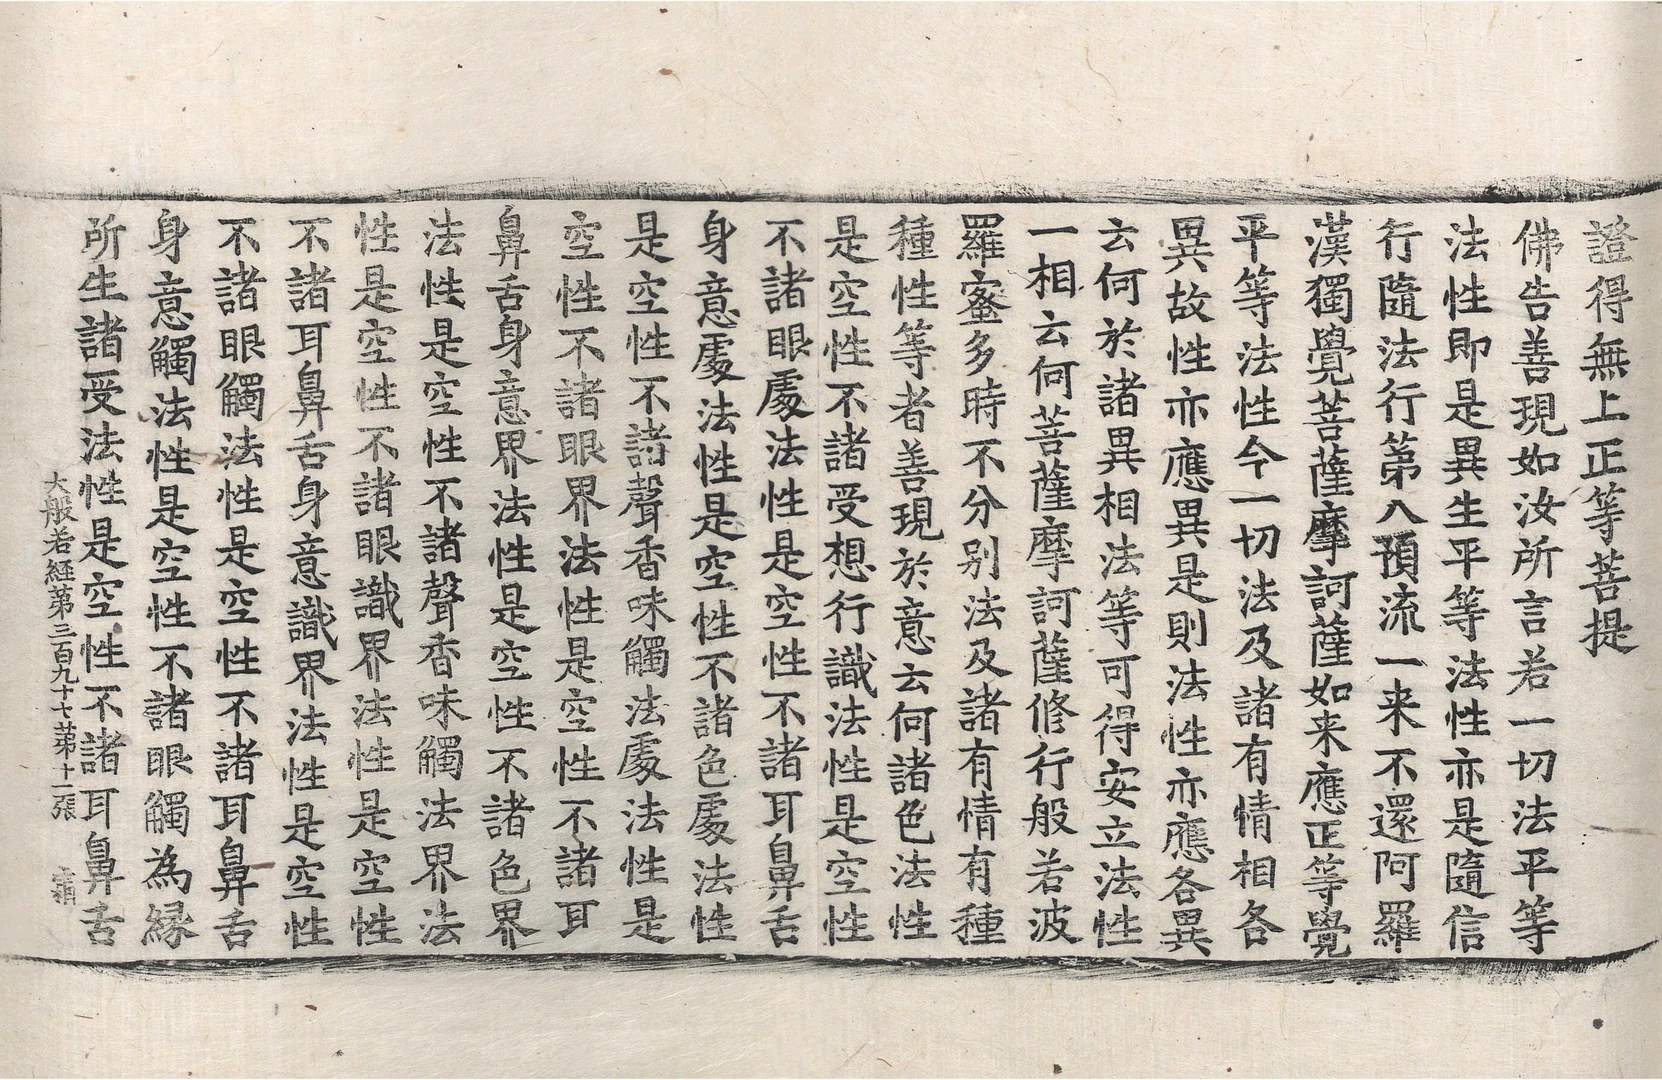 證得無上正等菩提
佛告善現如汝所言若一切法平等
法性即是異生平等法性亦是隨信
行隨法行第八預流一来不還阿羅
漢獨覺菩薩摩訶薩如来應正等覺
平等法性今一切法及諸有情相各
異故性亦應異是則法性亦應各異
云何於諸異相法等可得安立法性
一相云何菩薩摩訶薩修行般若波
羅蜜多時不分别法及諸有情有種
種性等者善現於意云何諸色法性
是空性不諸受想行識法性是空性
不諸眼處法性是空性不諸耳鼻舌
身意處法性是空性不諸色處法性
是空性不諸聲香味觸法處法性是
空性不諸眼界法性是空性不諸耳
鼻舌身意界法性是空性不諸色界
法性是空性不諸聲香味觸法界法
性是空性不諸眼識界法性是空性
不諸耳鼻舌身意識界法性是空性
不諸眼觸法性是空性不諸耳鼻舌
身意觸法性是空性不諸眼觸為緣
所生諸受法性是空性不諸耳鼻舌
大般若経第三百九十七第十二張 霜